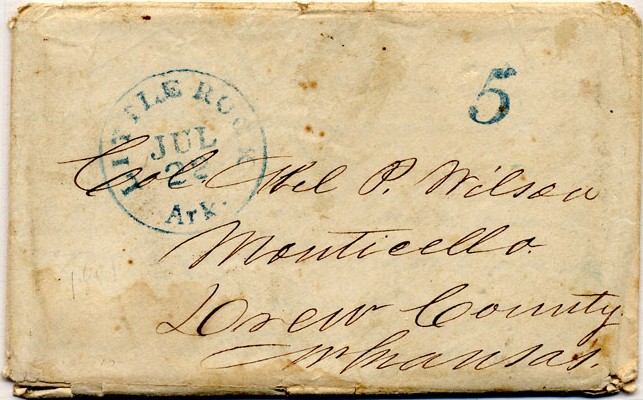 LITTLE ROCK
JUL
22
Ark.
5
Col. Abel P. Wilson
Monticello.
Drew County
Arkansas.